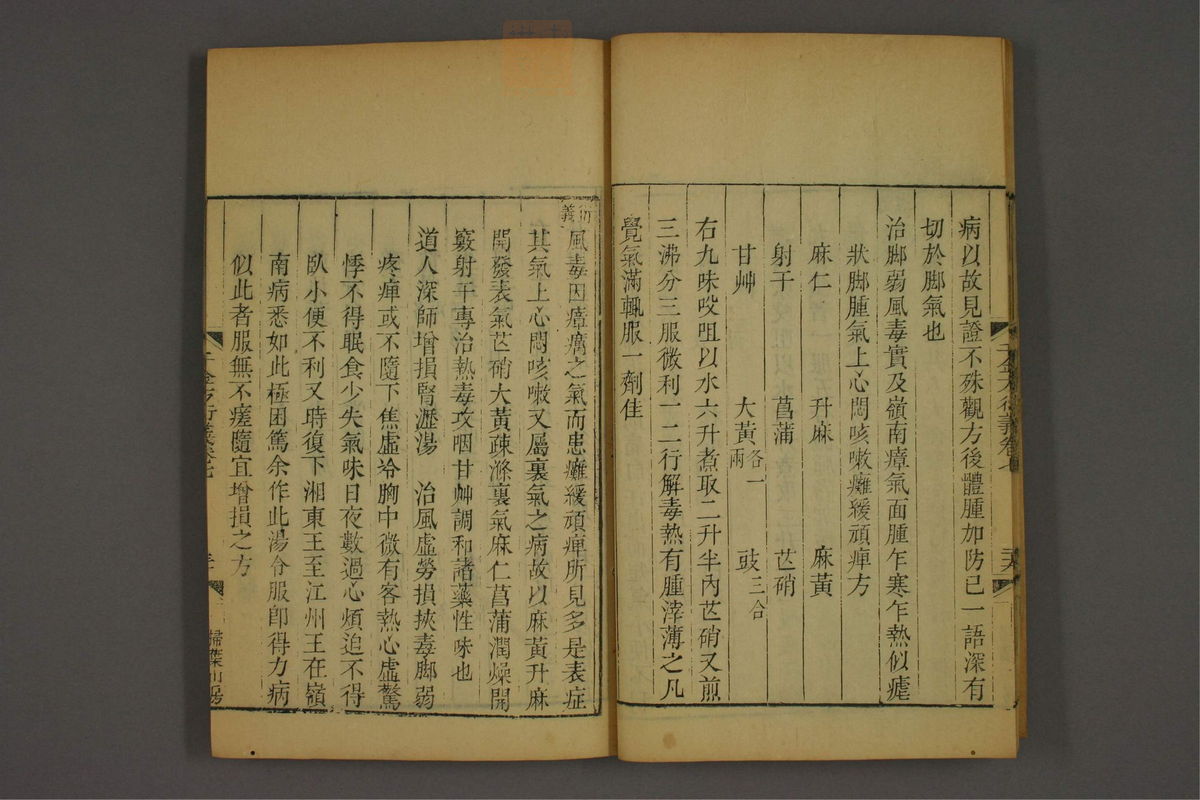 病以故見證不殊觀方後體腫加防己一語深有
切於脚氣也
治脚弱風毒實及嶺南瘴氣面腫乍寒乍熱似瘧
狀脚腫氣上心悶咳嗽癱緩頑痺方
麻仁 升麻 麻黃
射干 菖蒲 芒硝
甘艸 大黃各一兩 豉三合
右九味㕮咀以水六升煮取二升半內芒硝又煎
三沸分三服微利一二行解毒熱有腫滓薄之凡
覺氣滿輒服一劑佳
千金方衍義卷七
衍義
風毒因瘴癘之氣而患癱緩頑痺所見多是表症
其氣上心悶咳嗽又屬裏氣之病故以麻黃升麻
開發表氣芒硝大黃疎滌裏氣麻仁菖蒲潤燥開
竅射干專治熱毒攻咽甘艸調和諸藥性味也
道人深師增損腎瀝湯 治風虛勞損挾毒脚弱
疼痺或不隨下焦虛冷胸中微有客熱心虛驚
悸不得眠食少失氣味日夜數過心煩迫不得
臥小便不利又時復下湘東王至江州王在嶺
南病悉如此極困篤余作此湯令服卽得力病
似此者服無不瘥隨宜增損之方
千金方衍義卷七
掃葉山房